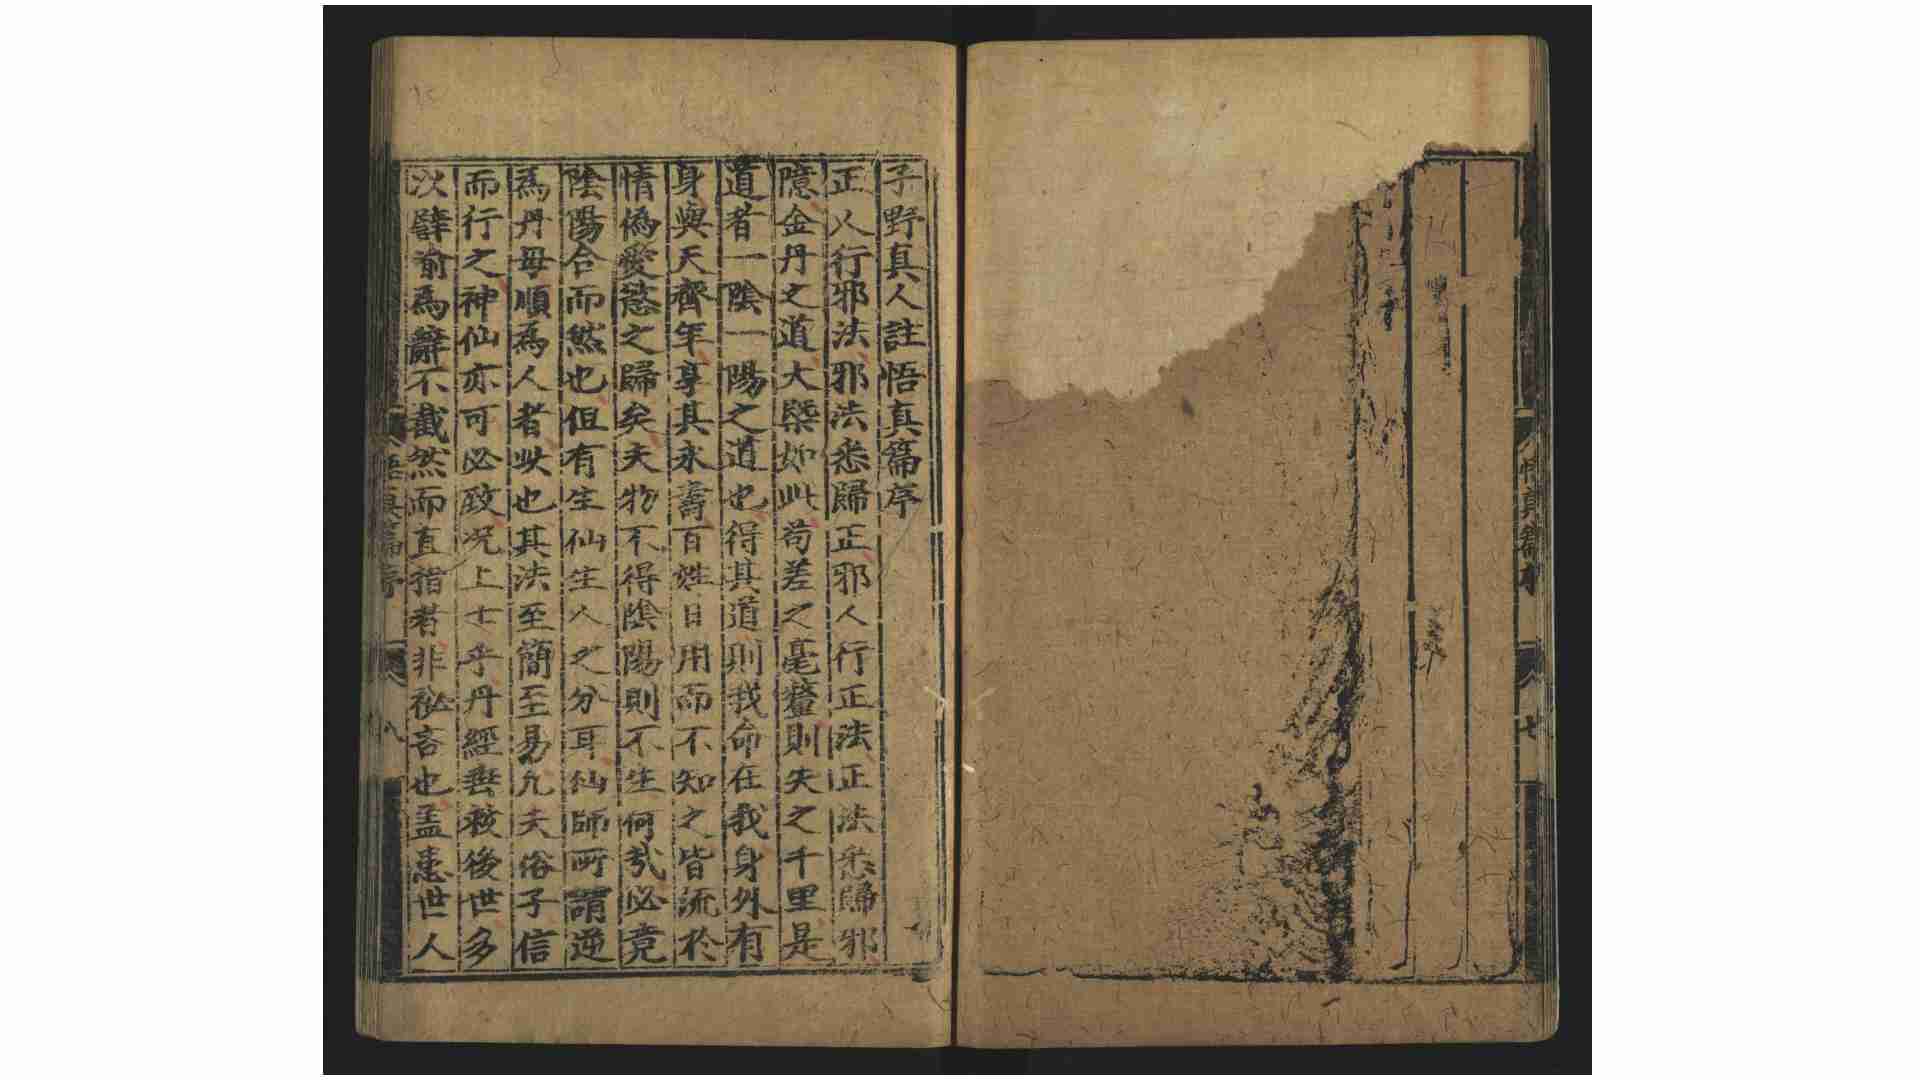 悟真篇序
七
子野真人註悟真篇序
正人行邪法邪法悉歸正邪人行正法正法悉歸邪
噫金丹之道大槩如此苟差之毫釐則失之千里是
道者一陰一陽之道也得其道則我命在我身外有
身與天齊年享其永壽百姓日用而不知之皆流於
情僞愛慾之歸矣夫物不得陰陽則不生何氣必竟
陰陽合而然也但有生仙生人之分耳仙師所謂逆
爲丹母順爲人者此也其法至簡至易凢夫俗子信
而行之神仙亦可必致况上士乎丹經垂救後世多
次譬喻爲辭不截然而直指者非祕吝也盖患世人
悟真篇序
八